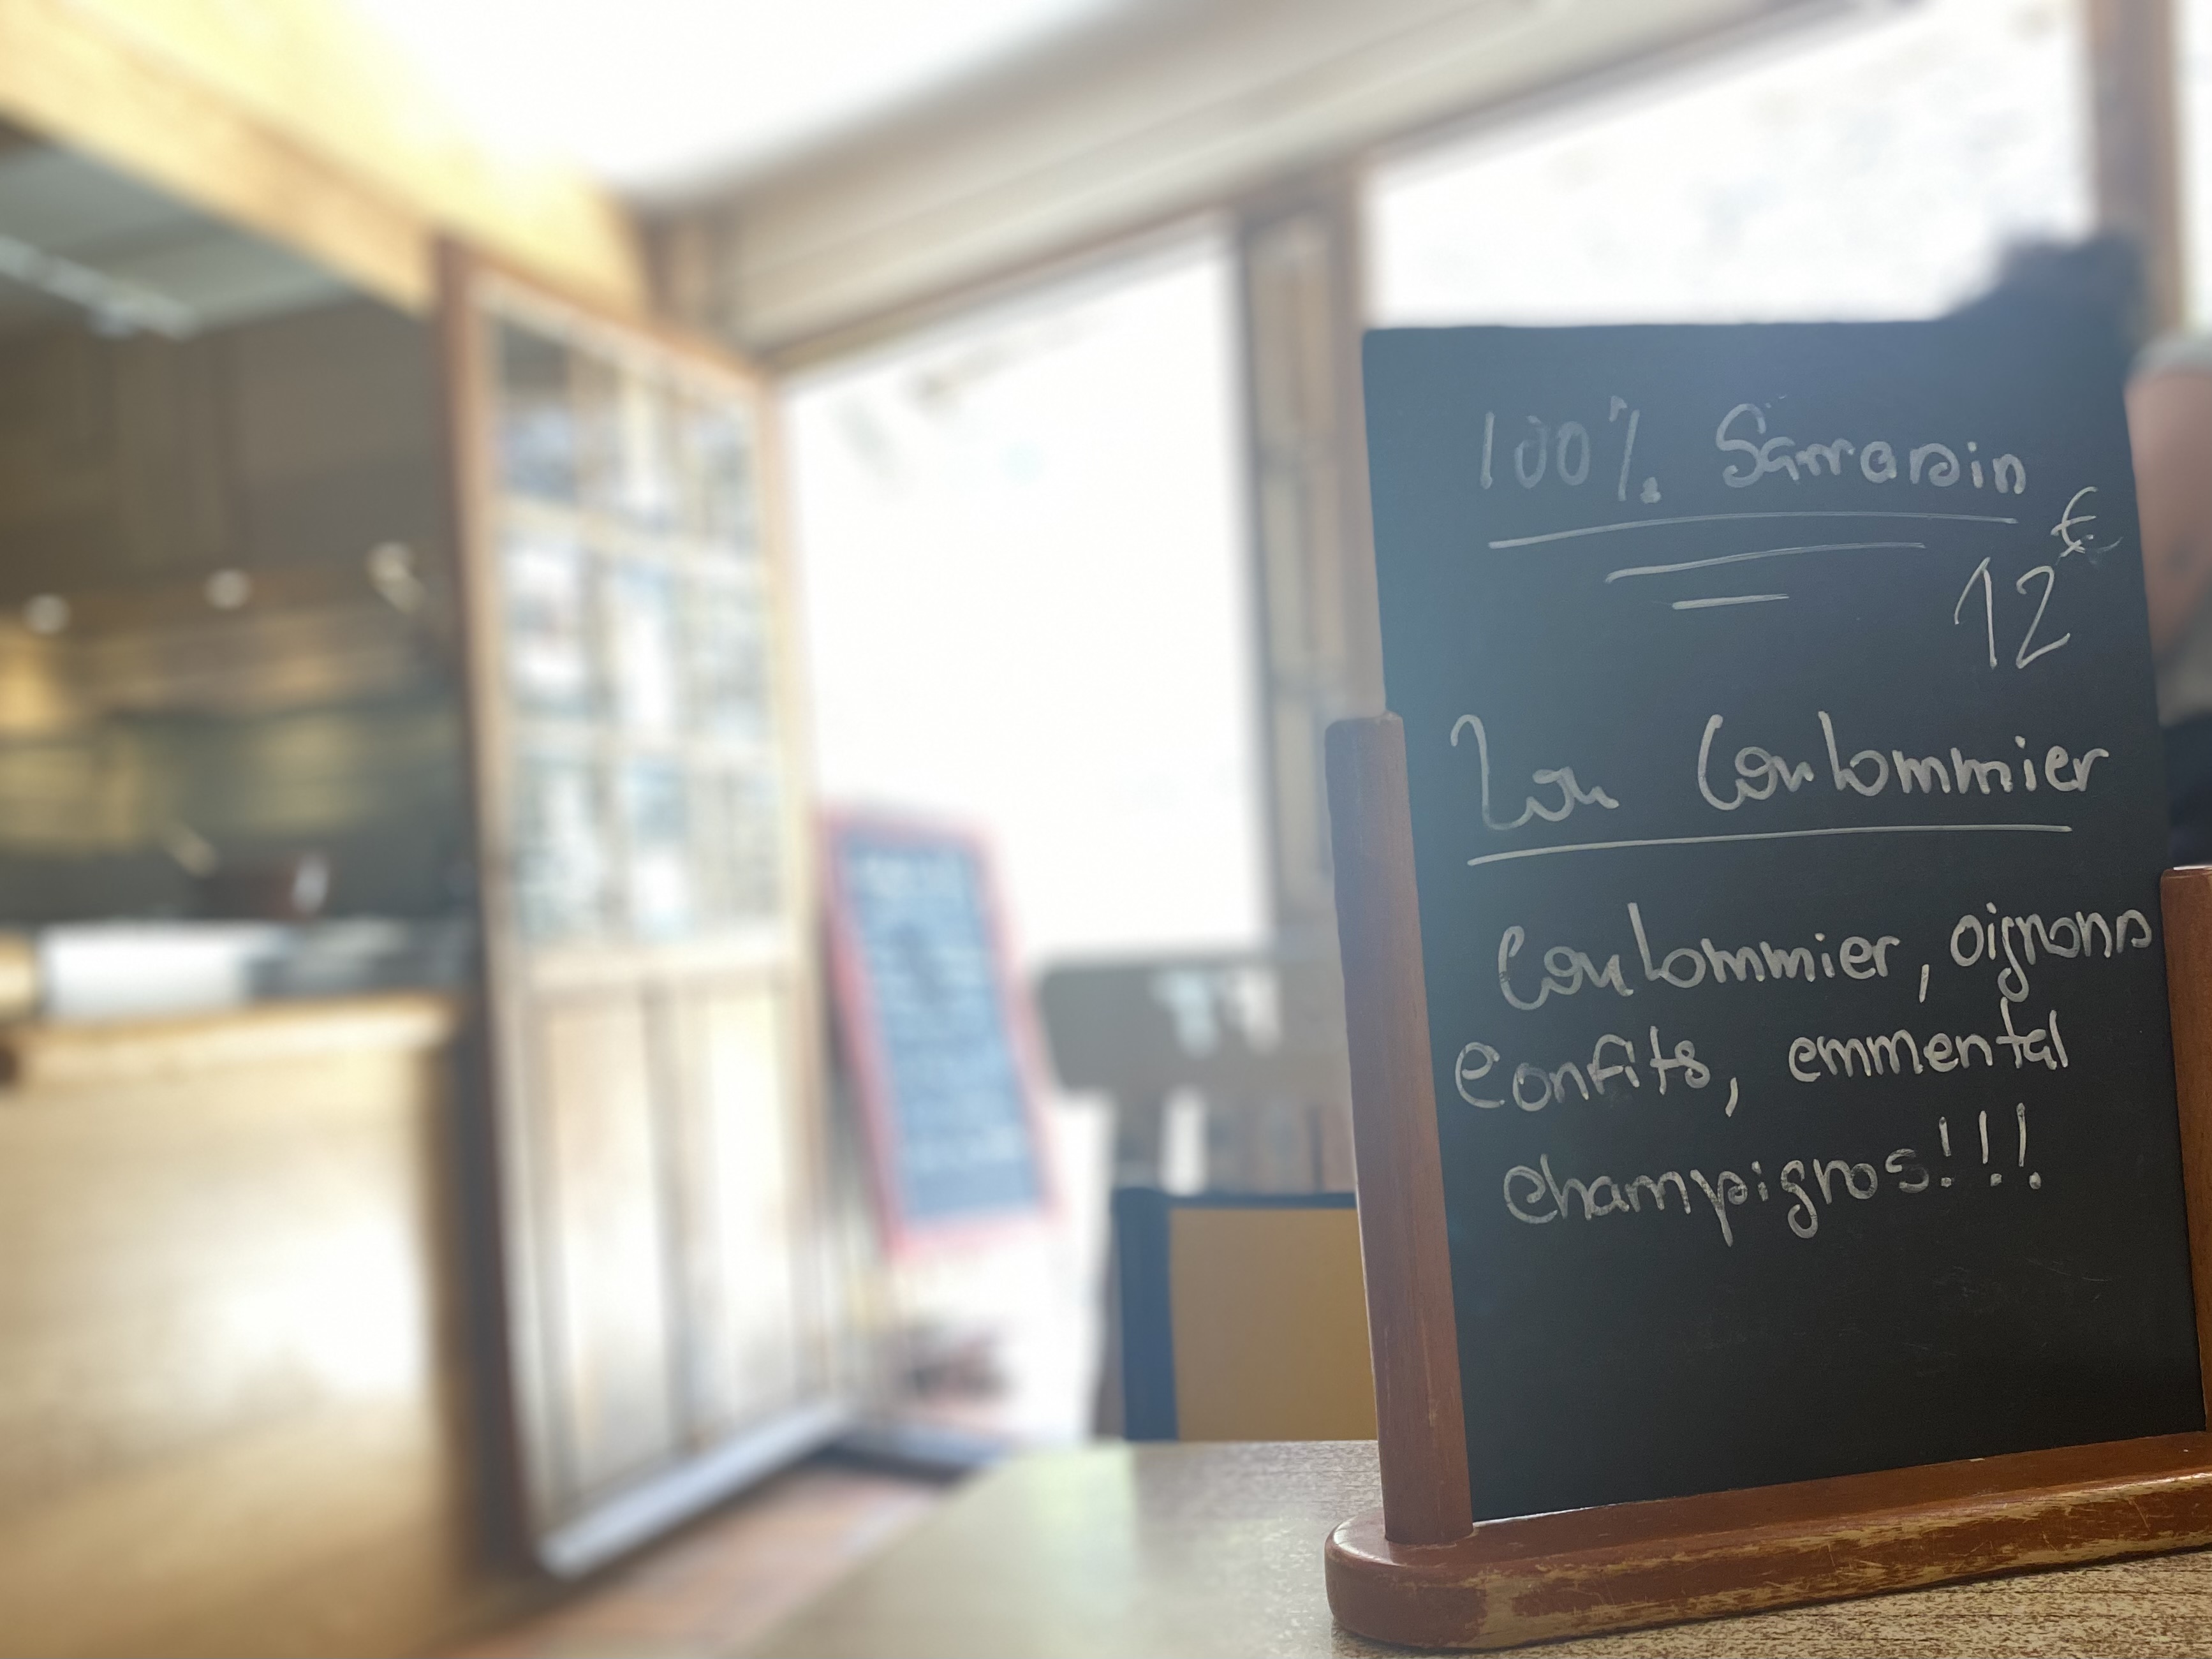 100% Sarrasin
12€
Lou Coulommier
Coulommier, oignons
confits, emmental
champignos!!!